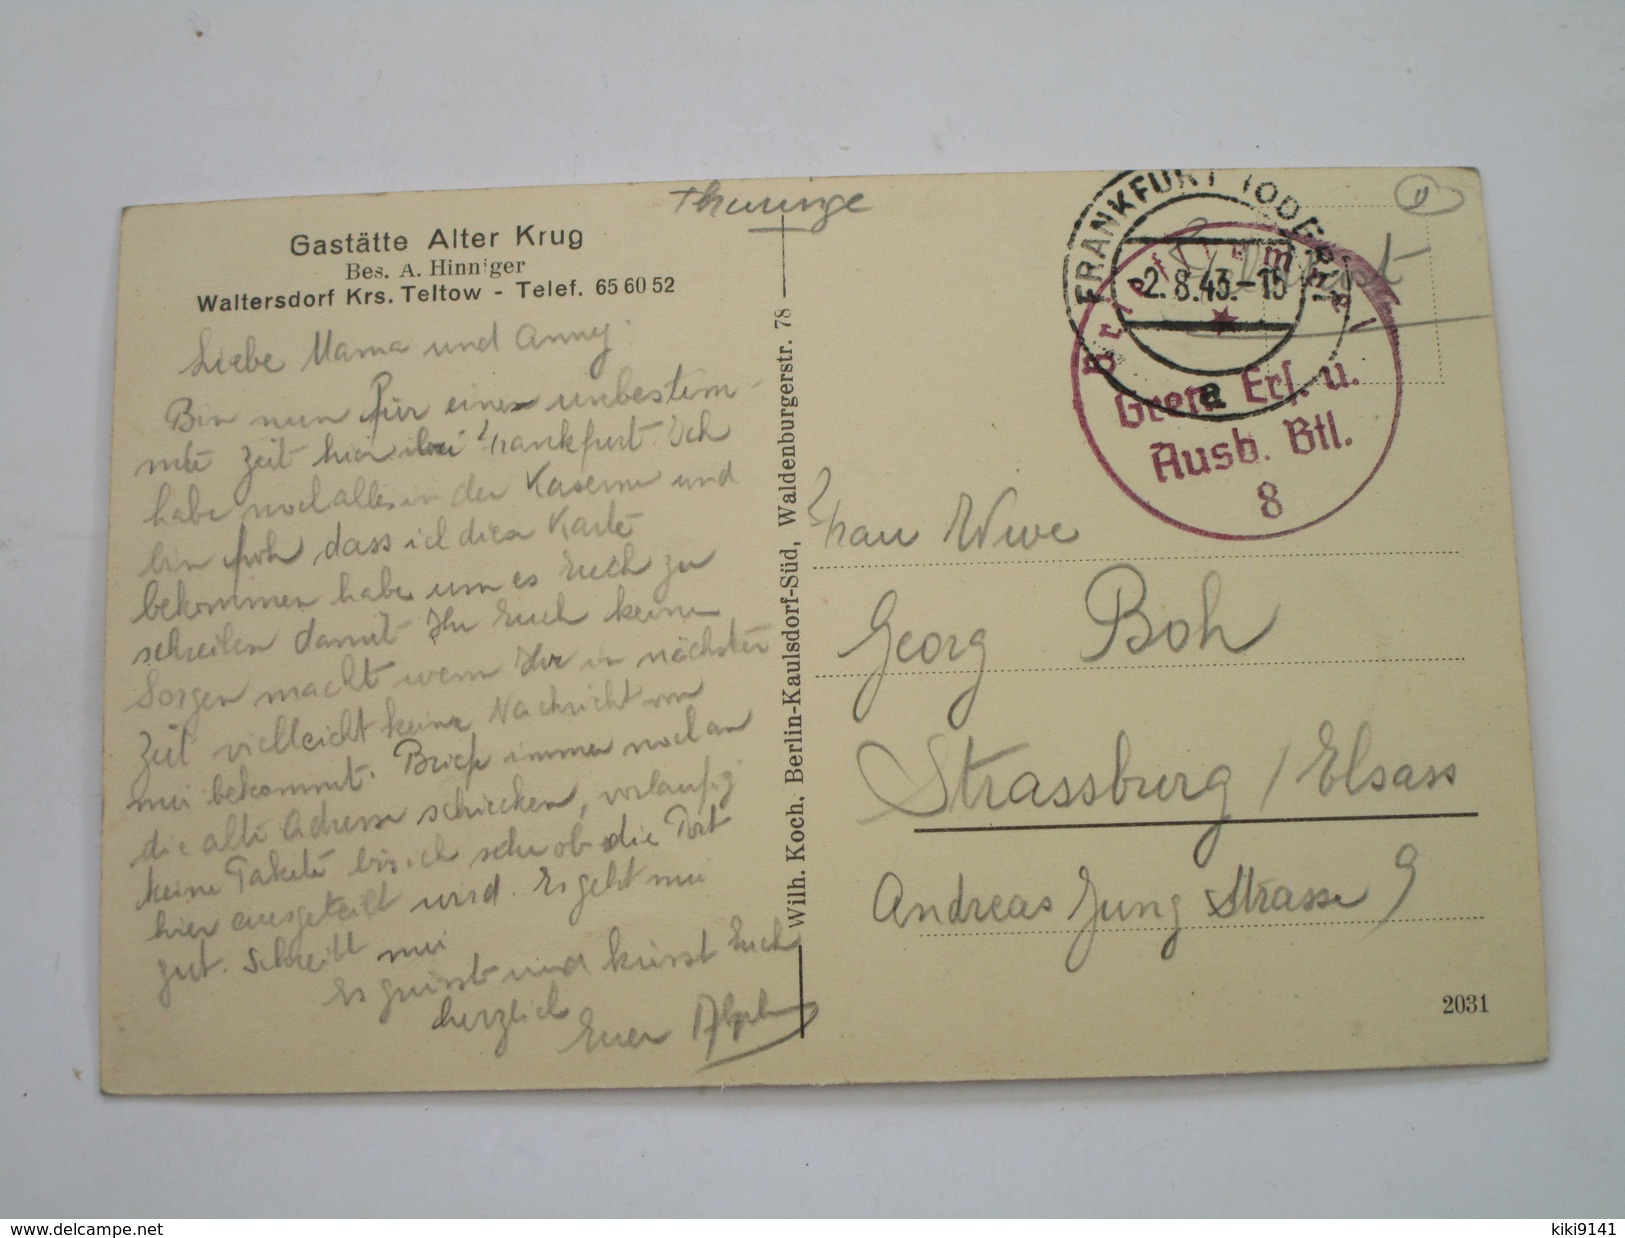 Thuringe
Gastätte Alter Krug
Bes. A. Hinniger
Waltersdorf Krs. Teltow - Telef. 65 60 52
Liebe Mama und Anny.
Bin nun für eine unbestem-
mte Zeit hier bei Frankfurt. Ich
habe noch alles in der Kaserne und
bin froh dass ich diese Karte
bekommen habe um es Euch zu
schreiben damit Ihr Euch keine
Sorgen macht wenn Ihr in nächster
Zeit vielleicht keine Nachricht von
mir bekommt. Briefe immer noch an
die alte Adresse schicken, vorläufig
keine Pakete bis ich sehe ob die Dort
hier ausgeteilt wird. Es geht mir
gut. Schreibt mir
Es grüsst und küsst Euch
herzlich
Euer
Wilh. Koch, Berlin-Kaulsdorf-Süd, Waldenburgerstr. 78
FRANKFURT (ODER)
2.8.43.-15
a
Briefstempel
Gren. Erf. u.
Ausb. Btl.
8
Feldpost
Frau Wwe
Georg Boh
Strassburg / Elsass
Andreas Jung Strasse 9
2031
delcampe.net
kiki9141